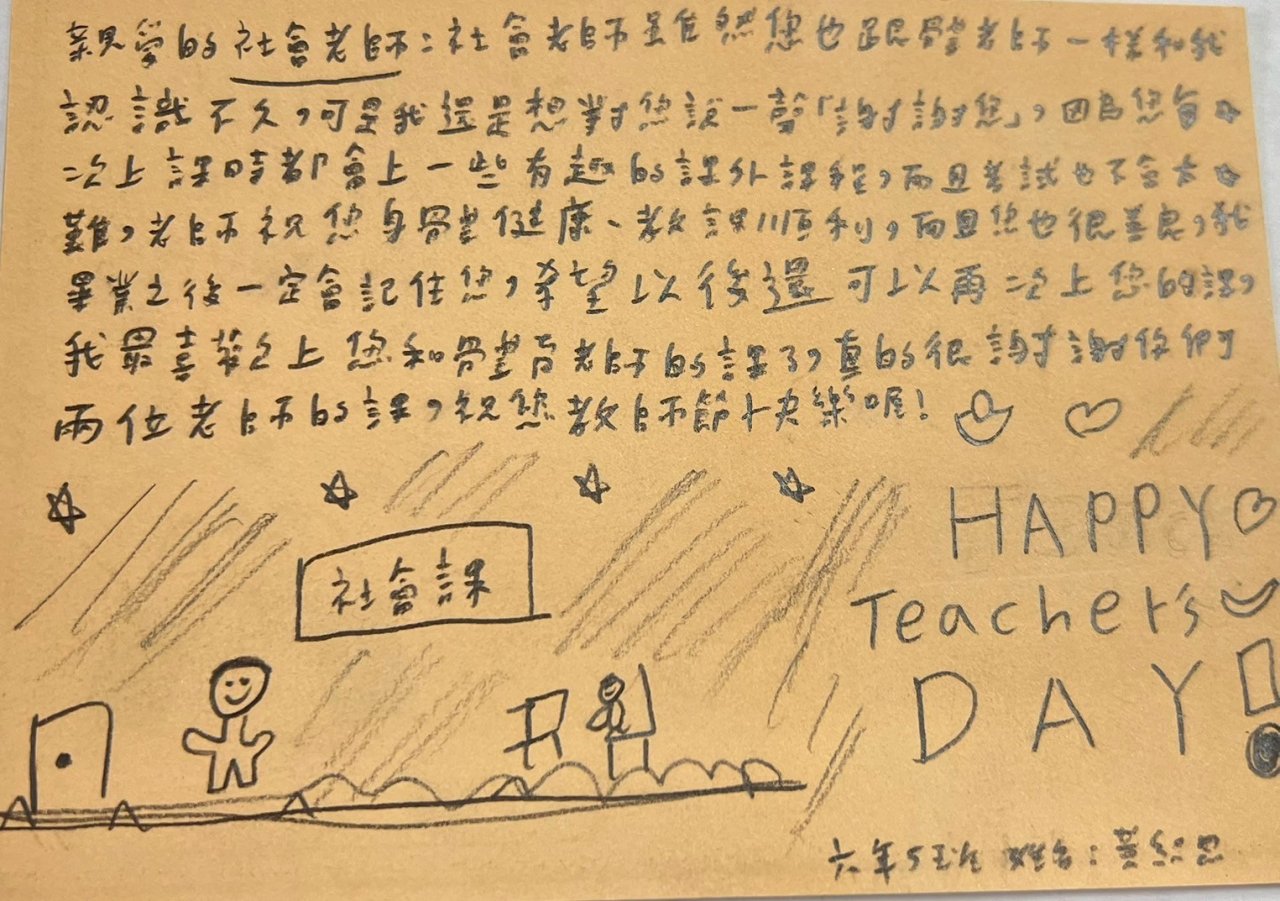 親愛的社會老師：社會老師雖然您也跟體育老師一樣和我
認識不久，可是我還是想對您說一聲「謝謝您」，因為您每
次上課時都會上一些有趣的課外課程，而且考試也不會太
難，老師祝您身體健康、教課順利，而且您也很善良，我
畢業之後一定會記住您，希望以後還可以再次上您的課，
我最喜歡上您和體育老師的課了，真的很謝謝你們
兩位老師的課，祝您教師節快樂喔！
社會課
HAPPY
Teacher's
DAY!
六年5班